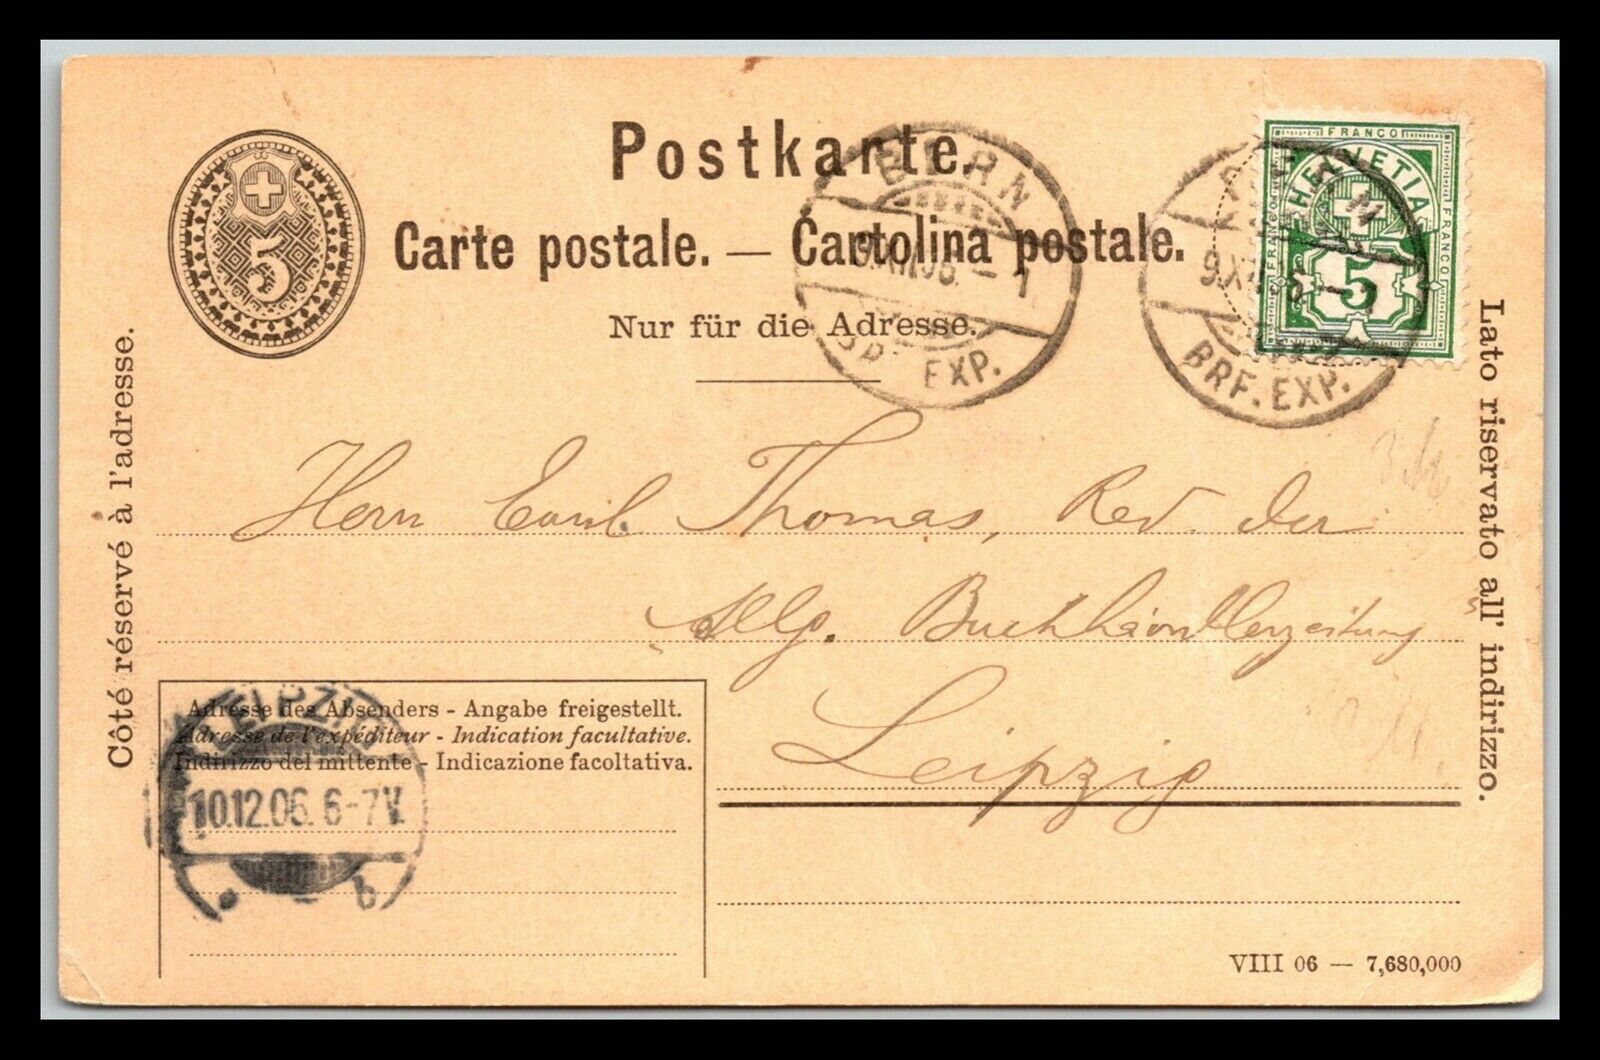 Postkarte.
Carte postale. — Cartolina postale.
Nur für die Adresse.
5
BERN
BRF. EXP.
FRANCO
FRANCO
FRANCO
HELVETIA
5
BERN
BRF. EXP.
Côté réservé à l'adresse.
Lato riservato all' indirizzo.
Herrn Emil Thomas, Red. der
Allg. Buchhändlerzeitung
Leipzig
Adresse des Absenders - Angabe freigestellt.
Adresse de l'expéditeur - Indication facultative.
Indirizzo del mittente - Indicazione facoltativa.
LEIPZIG
10.12.06. 6-7V.
b
VIII 06 — 7,680,000